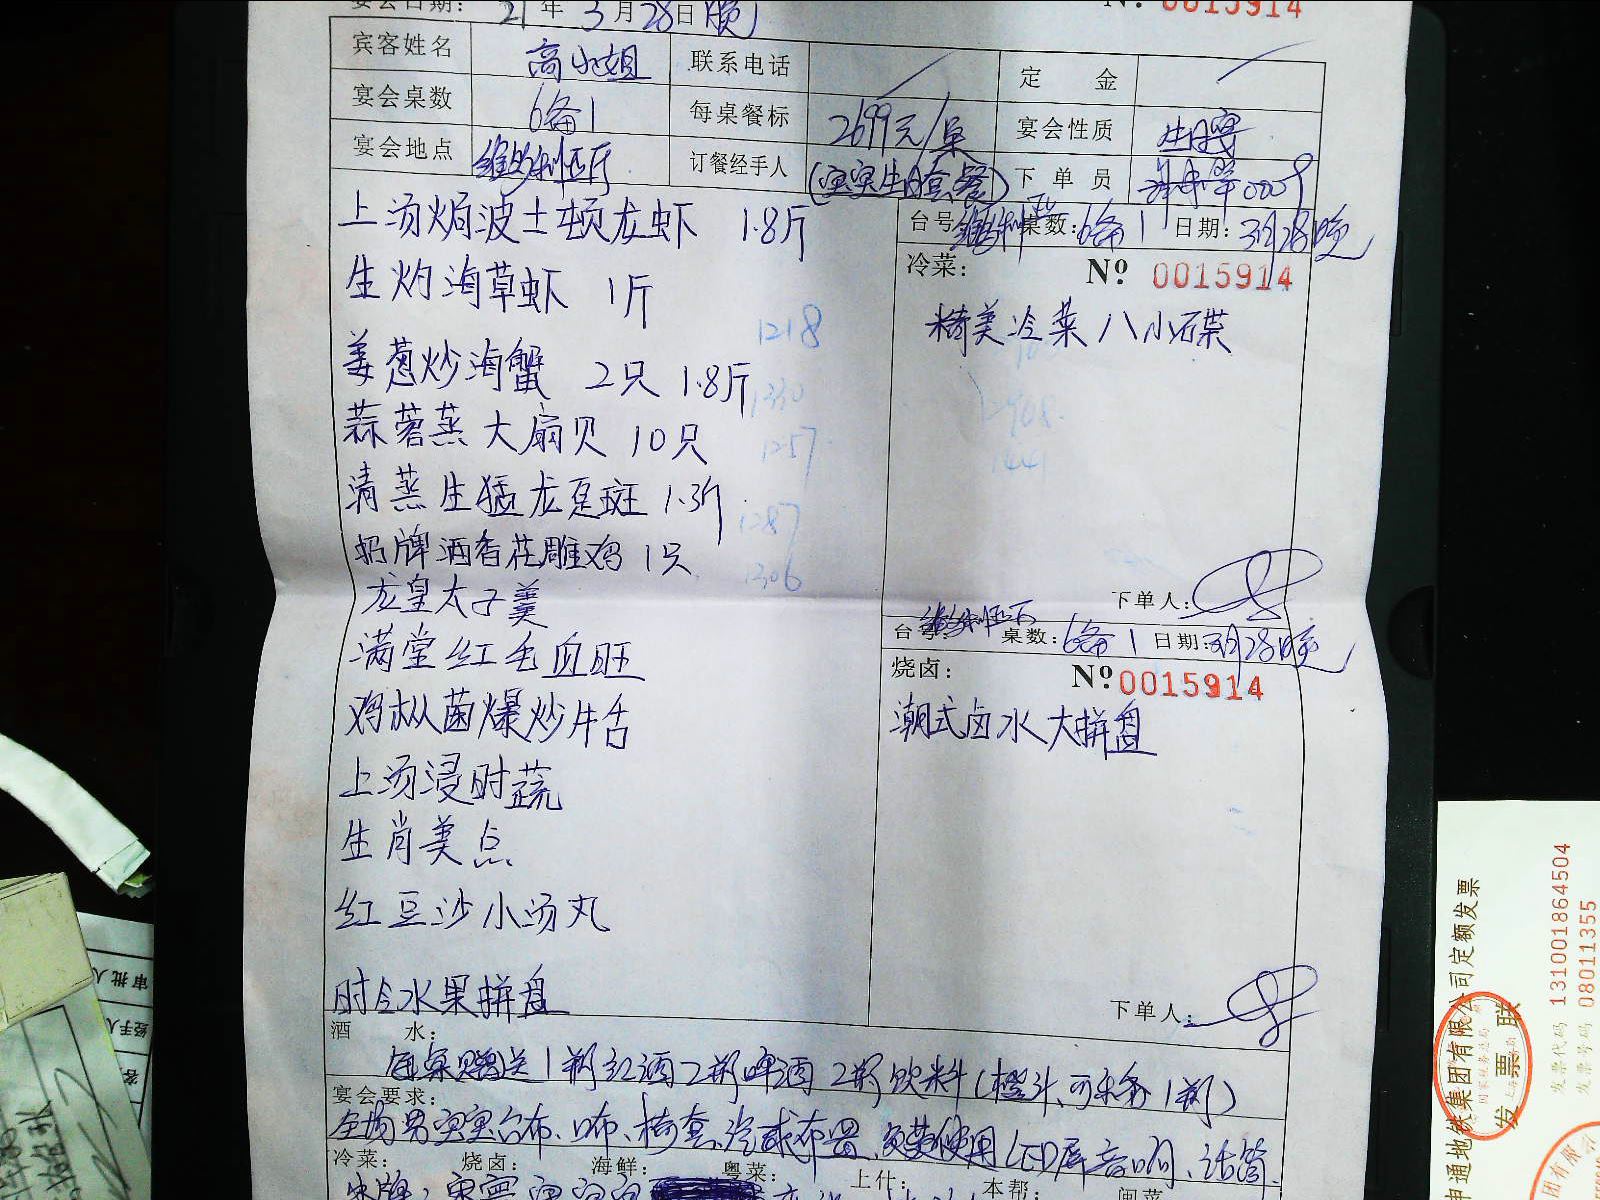 宴会日期: 21年3月28日(晚)
№ 0015914
宾客姓名 高小姐 联系电话 定金
宴会桌数 6备1 每桌餐标 2699元/桌 宴会性质 生日宴
宴会地点 维多利亚厅 订餐经手人 (宝宝生日套餐) 下单员 0009
上汤焗波士顿龙虾 1.8斤
生灼海草虾 1斤
姜葱炒海蟹 2只 1.8斤
蒜蓉蒸大扇贝 10只
清蒸生猛龙趸斑 1.3斤
招牌酒香花雕鸡 1只
龙皇太子羹
满堂红毛血旺
鸡枞菌爆炒牛舌
上汤浸时蔬
生肖美点
红豆沙小汤丸
时令水果拼盘
1218
1330
1257
1287
1306
台号: 维多利亚 桌数: 6备1 日期: 3月28晚
冷菜: № 0015914
精美冷菜八小碟
1441
下单人:
台号: 维多利亚厅 桌数: 6备1 日期: 3月28晚
烧卤: № 0015914
潮式卤水大拼盘
下单人:
酒水:
每桌赠送1瓶红酒2瓶啤酒2瓶饮料(橙汁、可乐各1瓶)
宴会要求:
全场男宝宝台布、口布、椅套、气球布置、免费使用LED屏音响、话筒
冷菜: 烧卤: 海鲜: 粤菜: 上什: 本帮: 闽菜
审批人
经手人
申通地铁集团有限公司定额发票
发票联
发票代码 131001864504
发票号码 08011355